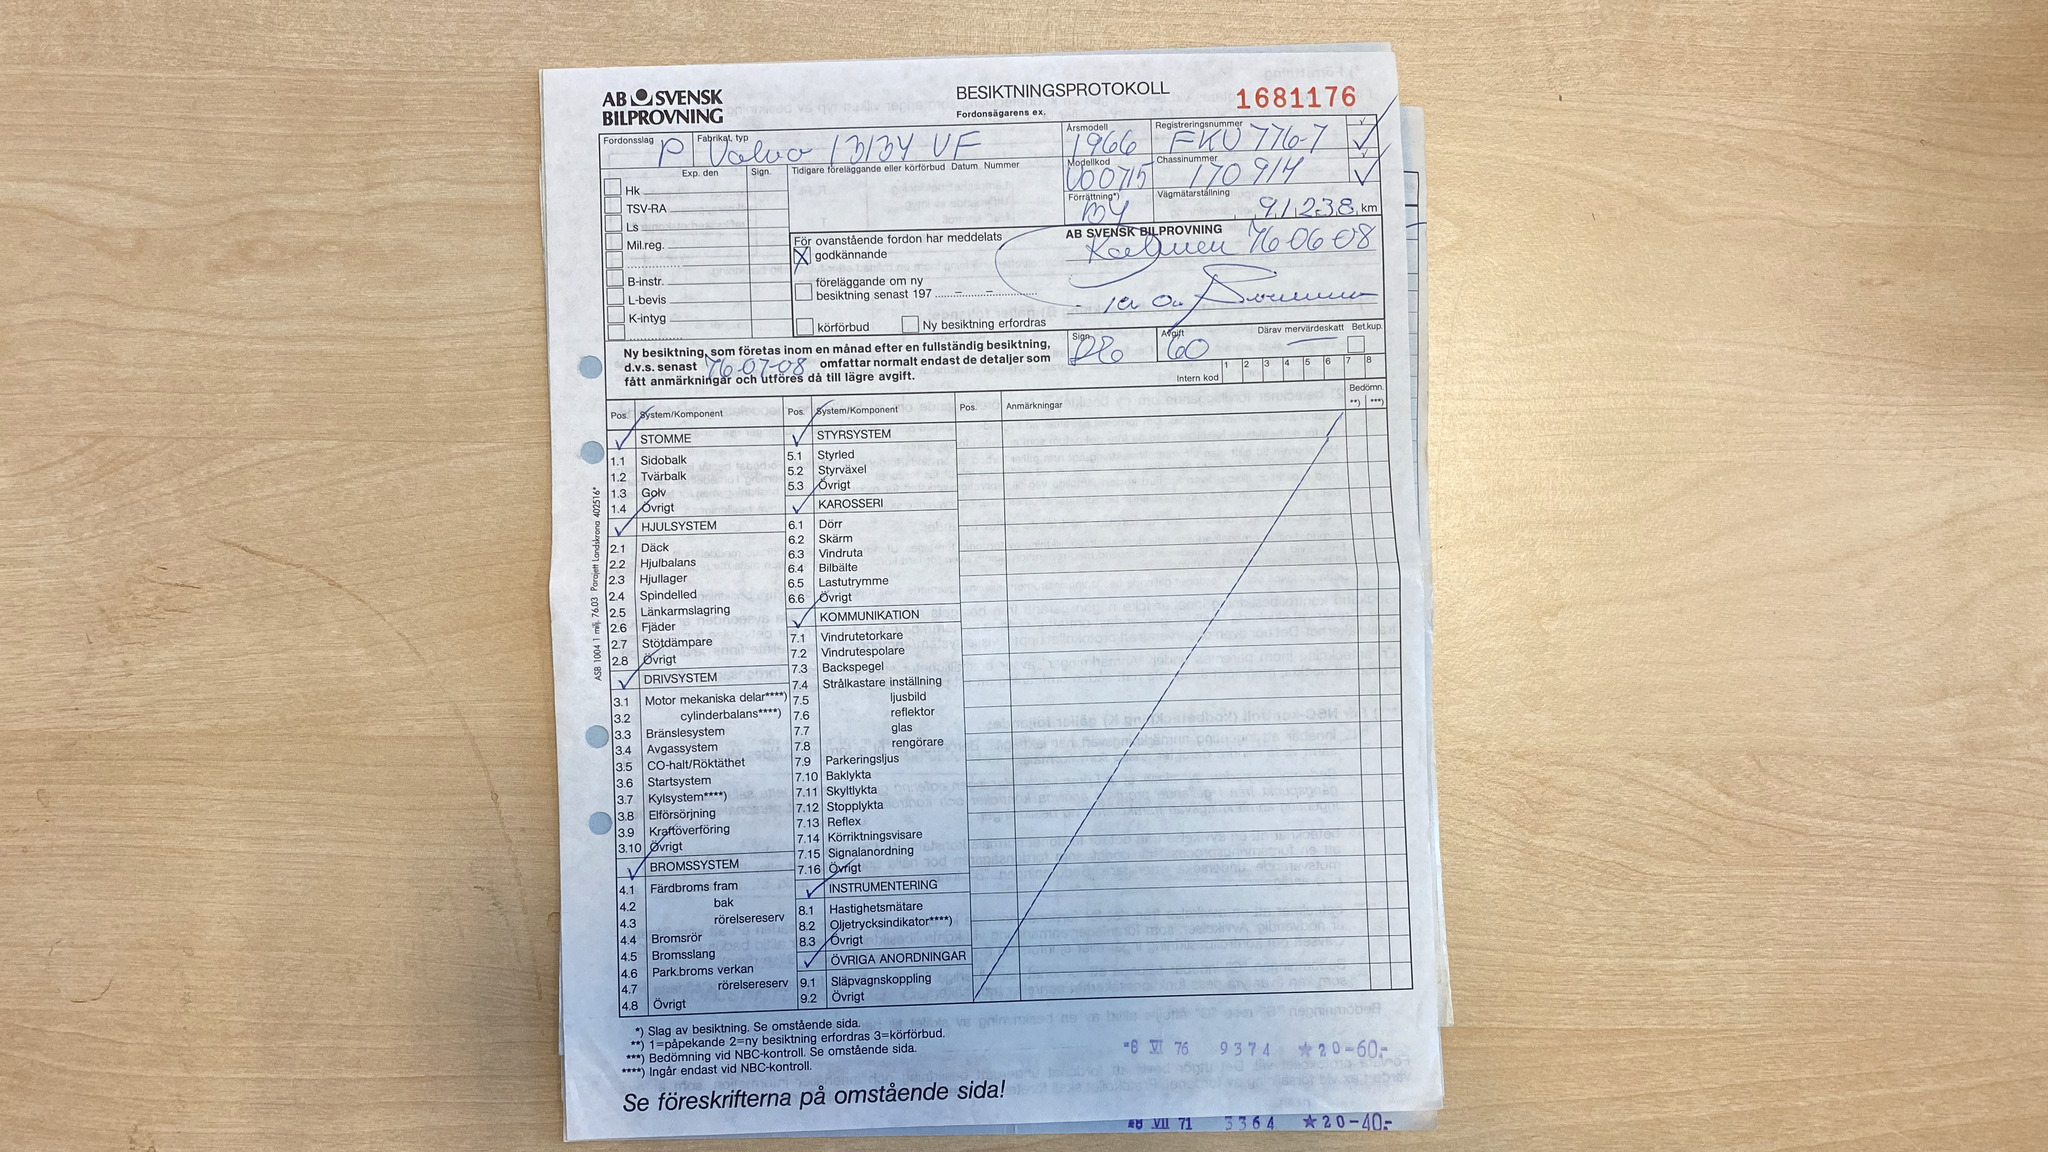 AB SVENSK
BILPROVNING
BESIKTNINGSPROTOKOLL
Fordonsägarens ex.
1681176
Fordonsslag P
Fabrikat, typ Volvo 13134 VF
Årsmodell 1966
Registreringsnummer FKU 776-7
Exp. den Sign.
Tidigare föreläggande eller körförbud Datum Nummer
Modellkod
Chassinummer 170914
Hk
TSV-RA
Ls
Mil.reg.
B-instr.
L-bevis
K-intyg
Förrättning*)
Vägmätarställning 91238 km
För ovanstående fordon har meddelats
X godkännande
föreläggande om ny
besiktning senast 197 – –
körförbud Ny besiktning erfordras
AB SVENSK BILPROVNING
Kalmar 76 06 08
Ny besiktning, som företas inom en månad efter en fullständig besiktning,
d.v.s. senast 76-07-08 omfattar normalt endast de detaljer som
fått anmärkningar och utföres då till lägre avgift.
Sign.
Avgift 60
Därav mervärdeskatt
Bet.kup.
Intern kod 1 2 3 4 5 6 7 8
Pos. System/Komponent
STOMME
1.1 Sidobalk
1.2 Tvärbalk
1.3 Golv
1.4 Övrigt
HJULSYSTEM
2.1 Däck
2.2 Hjulbalans
2.3 Hjullager
2.4 Spindelled
2.5 Länkarmslagring
2.6 Fjäder
2.7 Stötdämpare
2.8 Övrigt
DRIVSYSTEM
3.1 Motor mekaniska delar****)
3.2 cylinderbalans****)
3.3 Bränslesystem
3.4 Avgassystem
3.5 CO-halt/Röktäthet
3.6 Startsystem
3.7 Kylsystem****)
3.8 Elförsörjning
3.9 Kraftöverföring
3.10 Övrigt
BROMSSYSTEM
4.1 Färdbroms fram
4.2 bak
4.3 rörelsereserv
4.4 Bromsrör
4.5 Bromsslang
4.6 Park.broms verkan
4.7 rörelsereserv
4.8 Övrigt
Pos. System/Komponent
STYRSYSTEM
5.1 Styrled
5.2 Styrväxel
5.3 Övrigt
KAROSSERI
6.1 Dörr
6.2 Skärm
6.3 Vindruta
6.4 Bilbälte
6.5 Lastutrymme
6.6 Övrigt
KOMMUNIKATION
7.1 Vindrutetorkare
7.2 Vindrutespolare
7.3 Backspegel
7.4 Strålkastare inställning
7.5 ljusbild
7.6 reflektor
7.7 glas
7.8 rengörare
7.9 Parkeringsljus
7.10 Baklykta
7.11 Skyltlykta
7.12 Stopplykta
7.13 Reflex
7.14 Körriktningsvisare
7.15 Signalanordning
7.16 Övrigt
INSTRUMENTERING
8.1 Hastighetsmätare
8.2 Oljetrycksindikator****)
8.3 Övrigt
ÖVRIGA ANORDNINGAR
9.1 Släpvagnskoppling
9.2 Övrigt
Pos. Anmärkningar
Bedömn.
**) ***)
ASB 1004 1 milj. 76.03 Parajett Landskrona 402516*
*) Slag av besiktning. Se omstående sida.
**) 1=påpekande 2=ny besiktning erfordras 3=körförbud.
***) Bedömning vid NBC-kontroll. Se omstående sida.
****) Ingår endast vid NBC-kontroll.
-8 VI 76 9374 ★20-60.-
Se föreskrifterna på omstående sida!
VII 71 3364 ★20-40.-